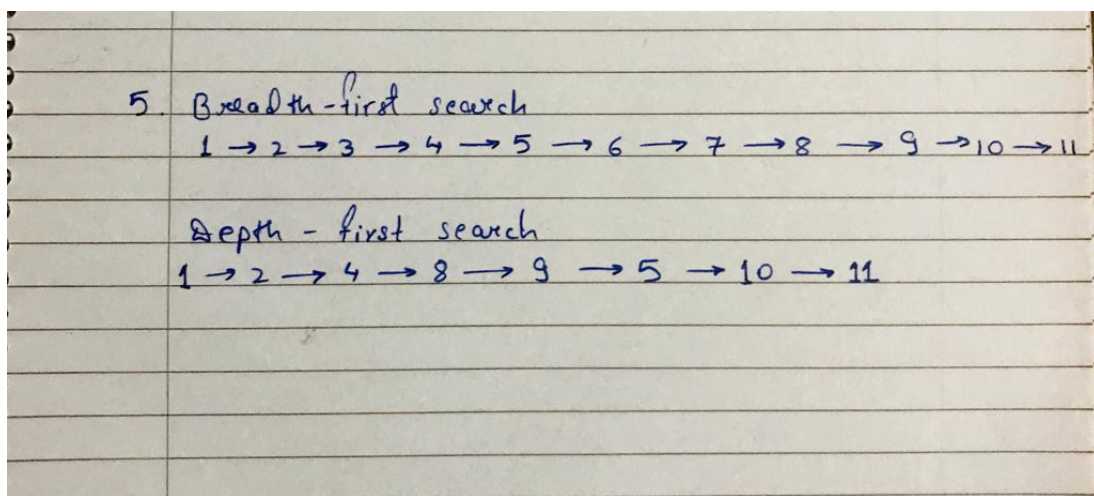 5. Breadth-first search
1 → 2 → 3 → 4 → 5 → 6 → 7 → 8 → 9 → 10 → 11
Depth - first search
1 → 2 → 4 → 8 → 9 → 5 → 10 → 11